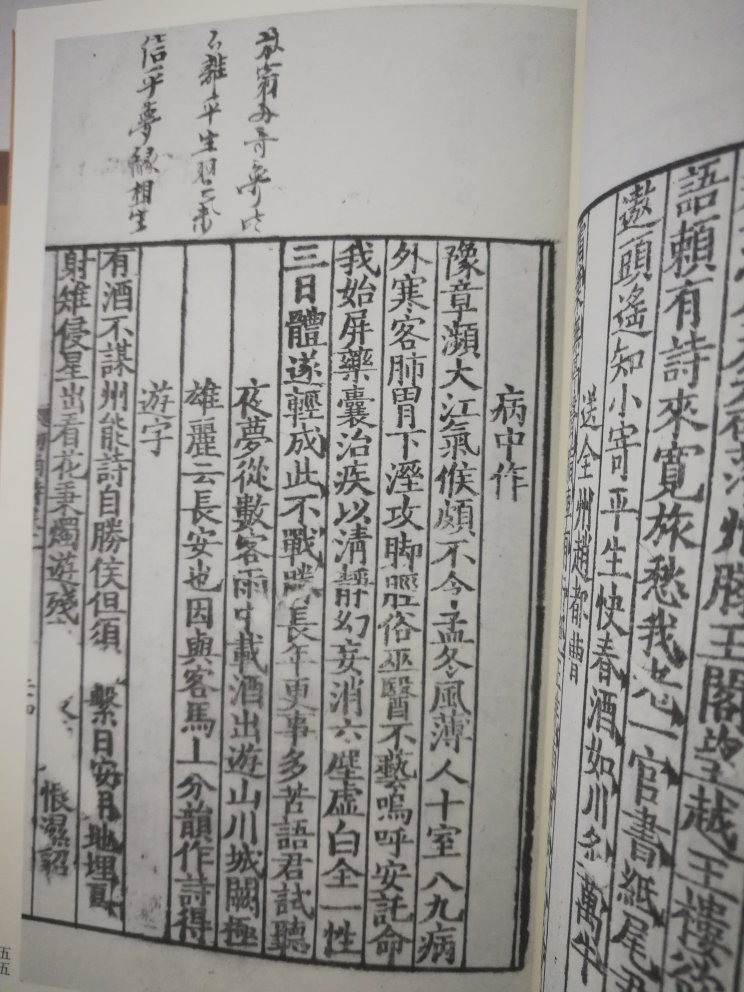 州滕王閣望越王樓
語賴有詩來寬旅愁我老一官書紙尾
遨頭遙知小寄平生快春酒如川名萬牛
送全州趙都曹
不離平生習氣
信乎夢緣相生
病中作
豫章瀕大江氣候頗不令孟冬風薄人十室八九病
外寒客肺胃下溼攻脚脛俗巫醫不藝嗚呼安託命
我始屏藥囊治疾以清靜幻妄消六塵虛白全一性
三日體遂輕成此不戰勝長年更事多苦語君試聽
夜夢從數客雨中載酒出遊山川城闕極
雄麗云長安也因與客馬上分韻作詩得
遊字
有酒不謀州能詩自勝侯但須 繫日安用地埋
射雉侵星出看花秉燭遊殘 悵濕貂
五五